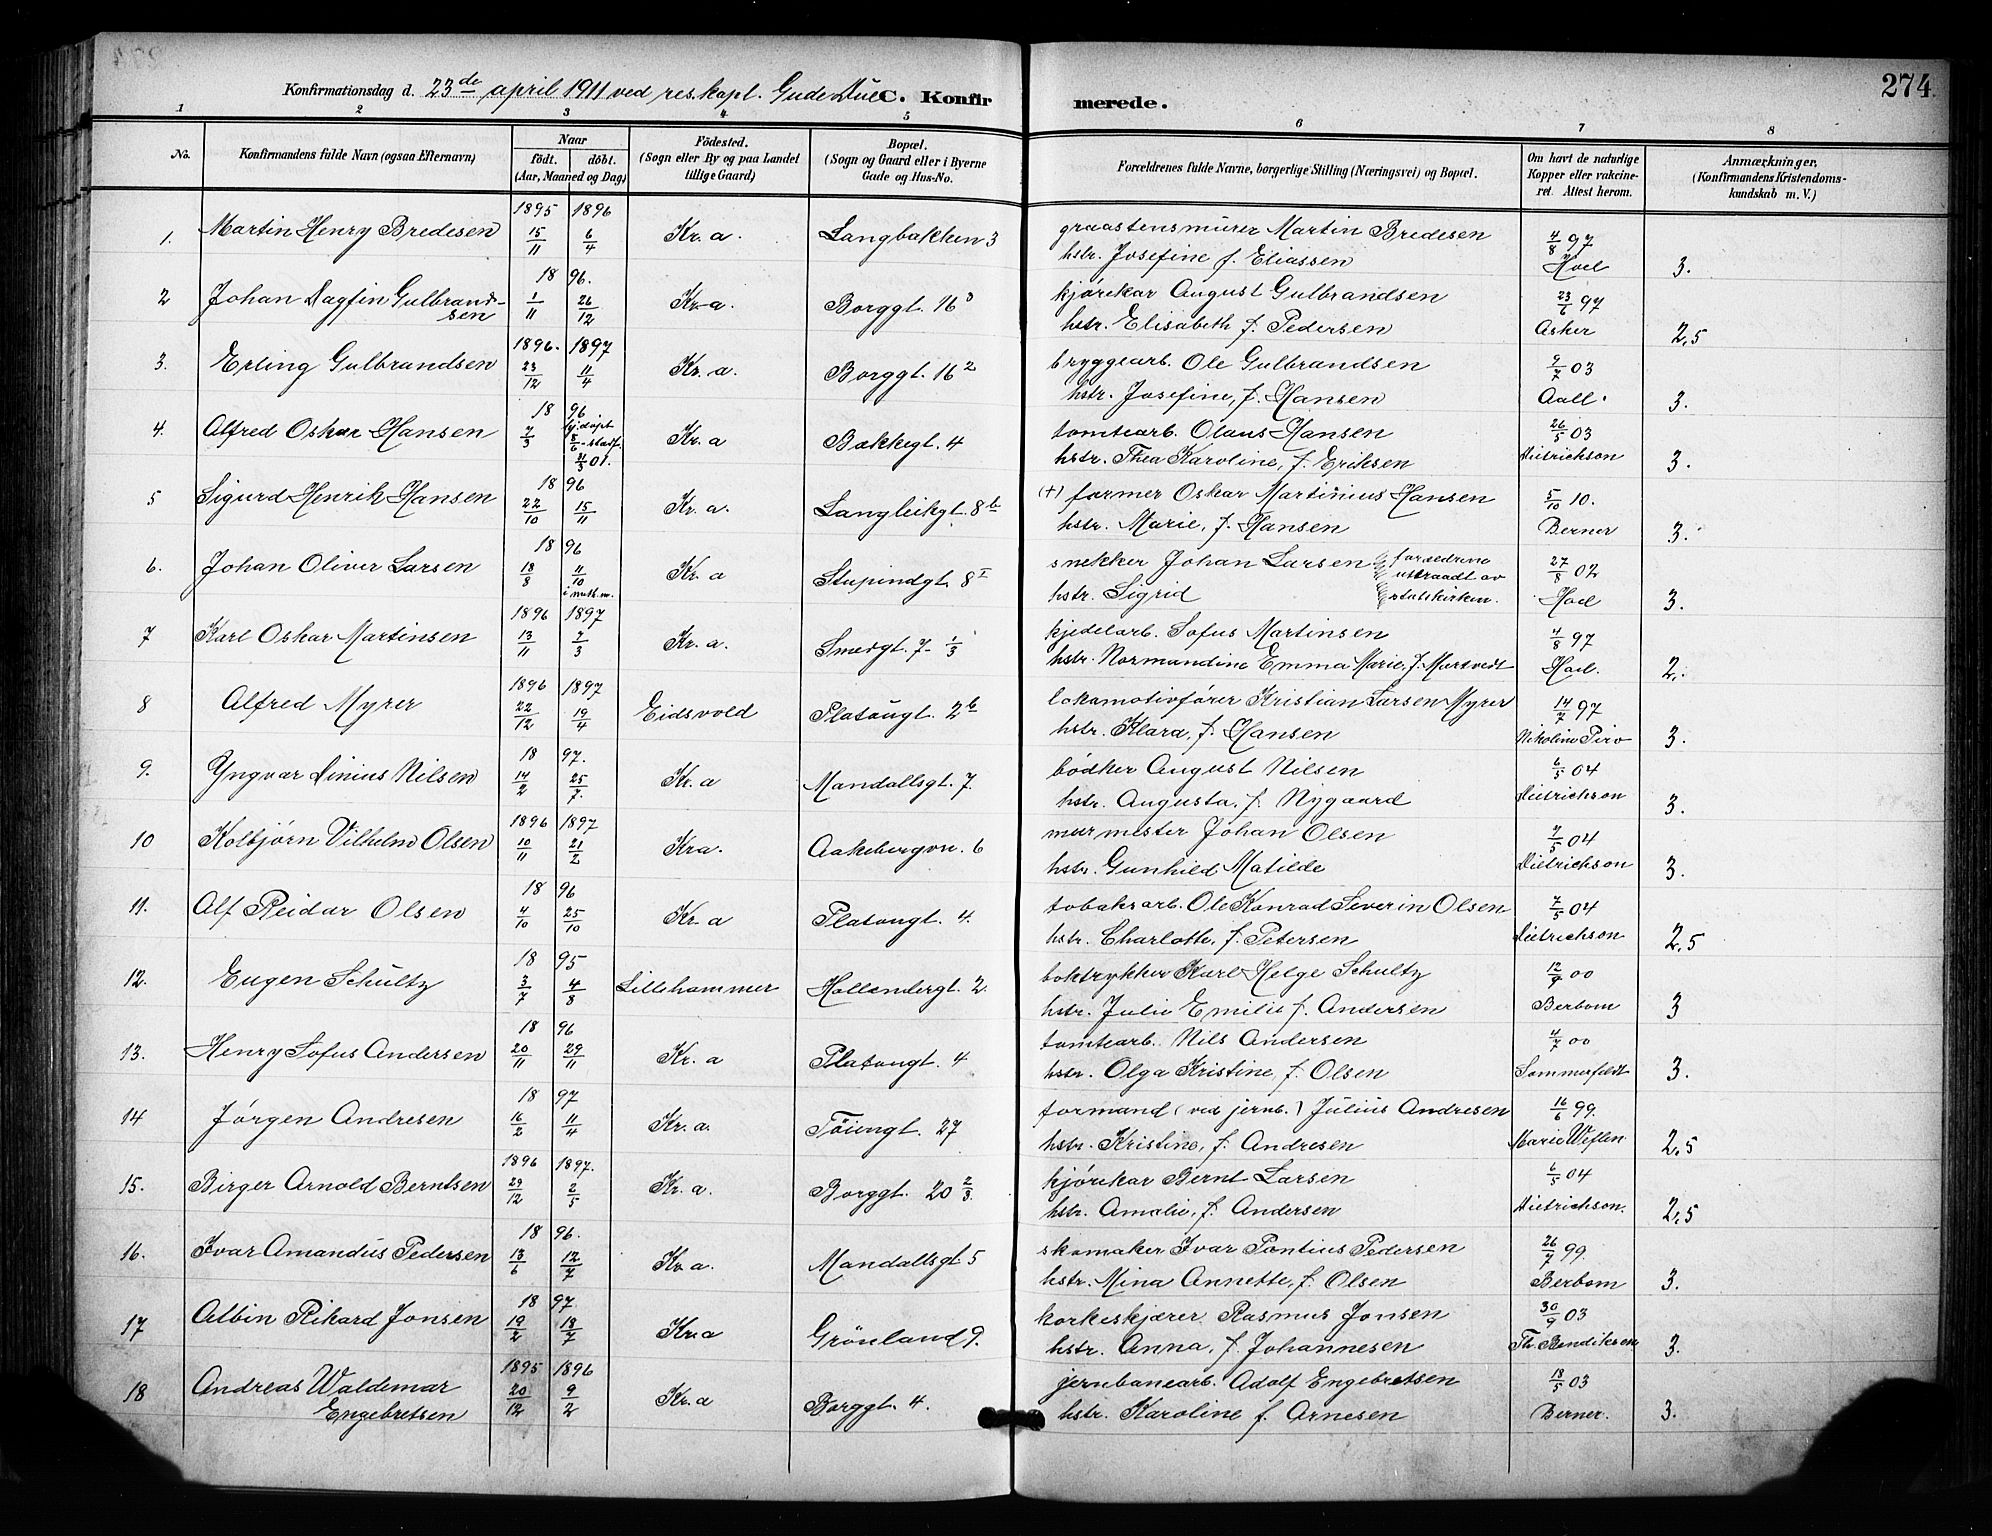 274.
Konfirmationsdag d. 23de april 1911 ved res. kapl. Gude Due C. Konfirmerede.
1 2 3 4 5 6 7 8
No. Konfirmandens fulde Navn (ogsaa Efternavn) Naar født. døbt. (Aar, Maaned og Dag) Födested. (Sogn eller By og paa Landet tillige Gaard) Bopæl. (Sogn og Gaard eller i Byerne Gade og Hus-No. Forældrenes fulde Navne, borgerlige Stilling (Næringsvei) og Bopæl. Om havt de naturlige Kopper eller vakcineret. Attest herom. Anmærkninger, (Konfirmandens Kristendomskundskab m. V.)
1. Martin Henry Bredesen 1895 15/11 1896 6/4 Kr.a. Langbakken 3 graastensmurer Martin Bredesen 4/8 97
hstr. Josefine f. Eliassen Hoel 3.
2 Johan Dagfin Gulbrandsen 18 96. 1/11 26/12 Kr.a. Borggt. 16 3 kjørekar August Gulbrandsen 23/6 97
hstr. Elisabeth f. Pedersen Asker 2,5
3. Erling Gulbrandsen 1896. 23/12 1897 11/4 Kr.a. Borggt. 16 2 bryggearb. Ole Gulbrandsen 9/7 03
hstr. Josefine, f. Hansen Aall. 3.
4. Alfred Oskar Hansen 18 96 7/3 hj.døpt 8/6 - stadf. 21/3 01. Kr.a Bakkegt. 4 tomtearb. Olaus Hansen 26/5 03
hstr. Thea Karoline, f. Eriksen Dietrichson 3.
5 Sigurd Henrik Hansen 18 96 22/10 15/11 Kr.a. Langleikgt. 8 b (+) former Oskar Martinius Hansen 5/10 10.
hstr. Marie, f. Hansen Berner 3.
6. Johan Oliver Larsen 18 96 18/8 11/10 i meth.m. Kr.a Stupindgt. 8 I snekker Johan Larsen forældrene utraadt av statskirken. 27/8 02
hstr. Sigrid Hoel 3.
7 Karl Oskar Martinsen 1896 13/11 1897 7/3 Kr.a. Smedgt. 7 - 1/3 kjedelarb. Sofus Martinsen 4/8 97
hstr. Normandine Emma Marie, f. Martvedt Hoel. 2.
8 Alfred Myrer 1896 22/12 1897 19/4 Eidsvold Platougt. 2 b lokomotivfører Kristian Larsen Myrer 14/7 97
hstr. Klara, f. Hansen Nikoline Piro 3.
9. Yngvar Linius Nilsen 18 97. 14/2 25/7. Kr.a Mandallsgt. 7. bødker August Nilsen 6/5 04
hstr. Augusta, f. Nygaard Dietrichson 3.
10 Kolbjørn Vilhelm Olsen 1896 10/11 1897 21/2 Kr.a. Aakebergvn. 6 murmester Johan Olsen 7/5 04
hstr. Gunhild Matilde Dietrichson 3.
11. Alf Reidar Olsen 18 96 4/10 25/10 Kr.a Platougt. 4. tobaksarb. Ole Konrad Severin Olsen 7/5 04
hstr. Charlotte, f. Petersen Dietrichson 2,5
12. Eugen Schultz 18 95 3/7 4/8 Lillehammer Hollendergt. 2. boktrykker Karl Helge Schultz 12/9 00
hstr. Julie Emilie f. Andersen Berbom 3
13. Henry Sofus Andersen 18 96 20/11 29/11 Kr.a Platougt. 4 tomtearb. Nils Andersen 4/7 00
hstr. Olga Kristine, f. Olsen Sommerfeldt 3.
14 Jørgen Andresen 18 97 16/2 11/4 Kr.a. Tøiengt. 27 formand (ved jernb.) Julius Andresen 16/6 99.
hstr. Kristine, f. Andresen Marie Weflen 2,5
15. Birger Arnold Berntsen 1896 29/12 1897. 2/5 Kr.a. Borggt. 20 2/3. kjørekar Bernt Larsen 6/5 04
hstr. Amalie, f. Andersen Dietrichson. 2,5
16. Ivar Amandus Pedersen 18 96. 13/6 12/7 Kr.a. Mandallsgt 5 skomaker Ivar Pontius Pedersen 26/7 99.
hstr. Mina Annette, f. Olsen Berbom 3.
17 Albin Rikard Jonsen 18 97 19/2 18/7 Kr.a Grønland 9. korkeskjærer Rasmus Jonsen 30/9 03
hstr. Anna, f. Johannesen Th. Bendiksen 3.
18 Andreas Waldemar Engebretsen 1895 20/12 1896 9/2 Kr.a Borggt. 4. jernbanearb. Adolf Engebretsen 18/5 03
hstr. Karoline f. Arnesen Berner. 3.